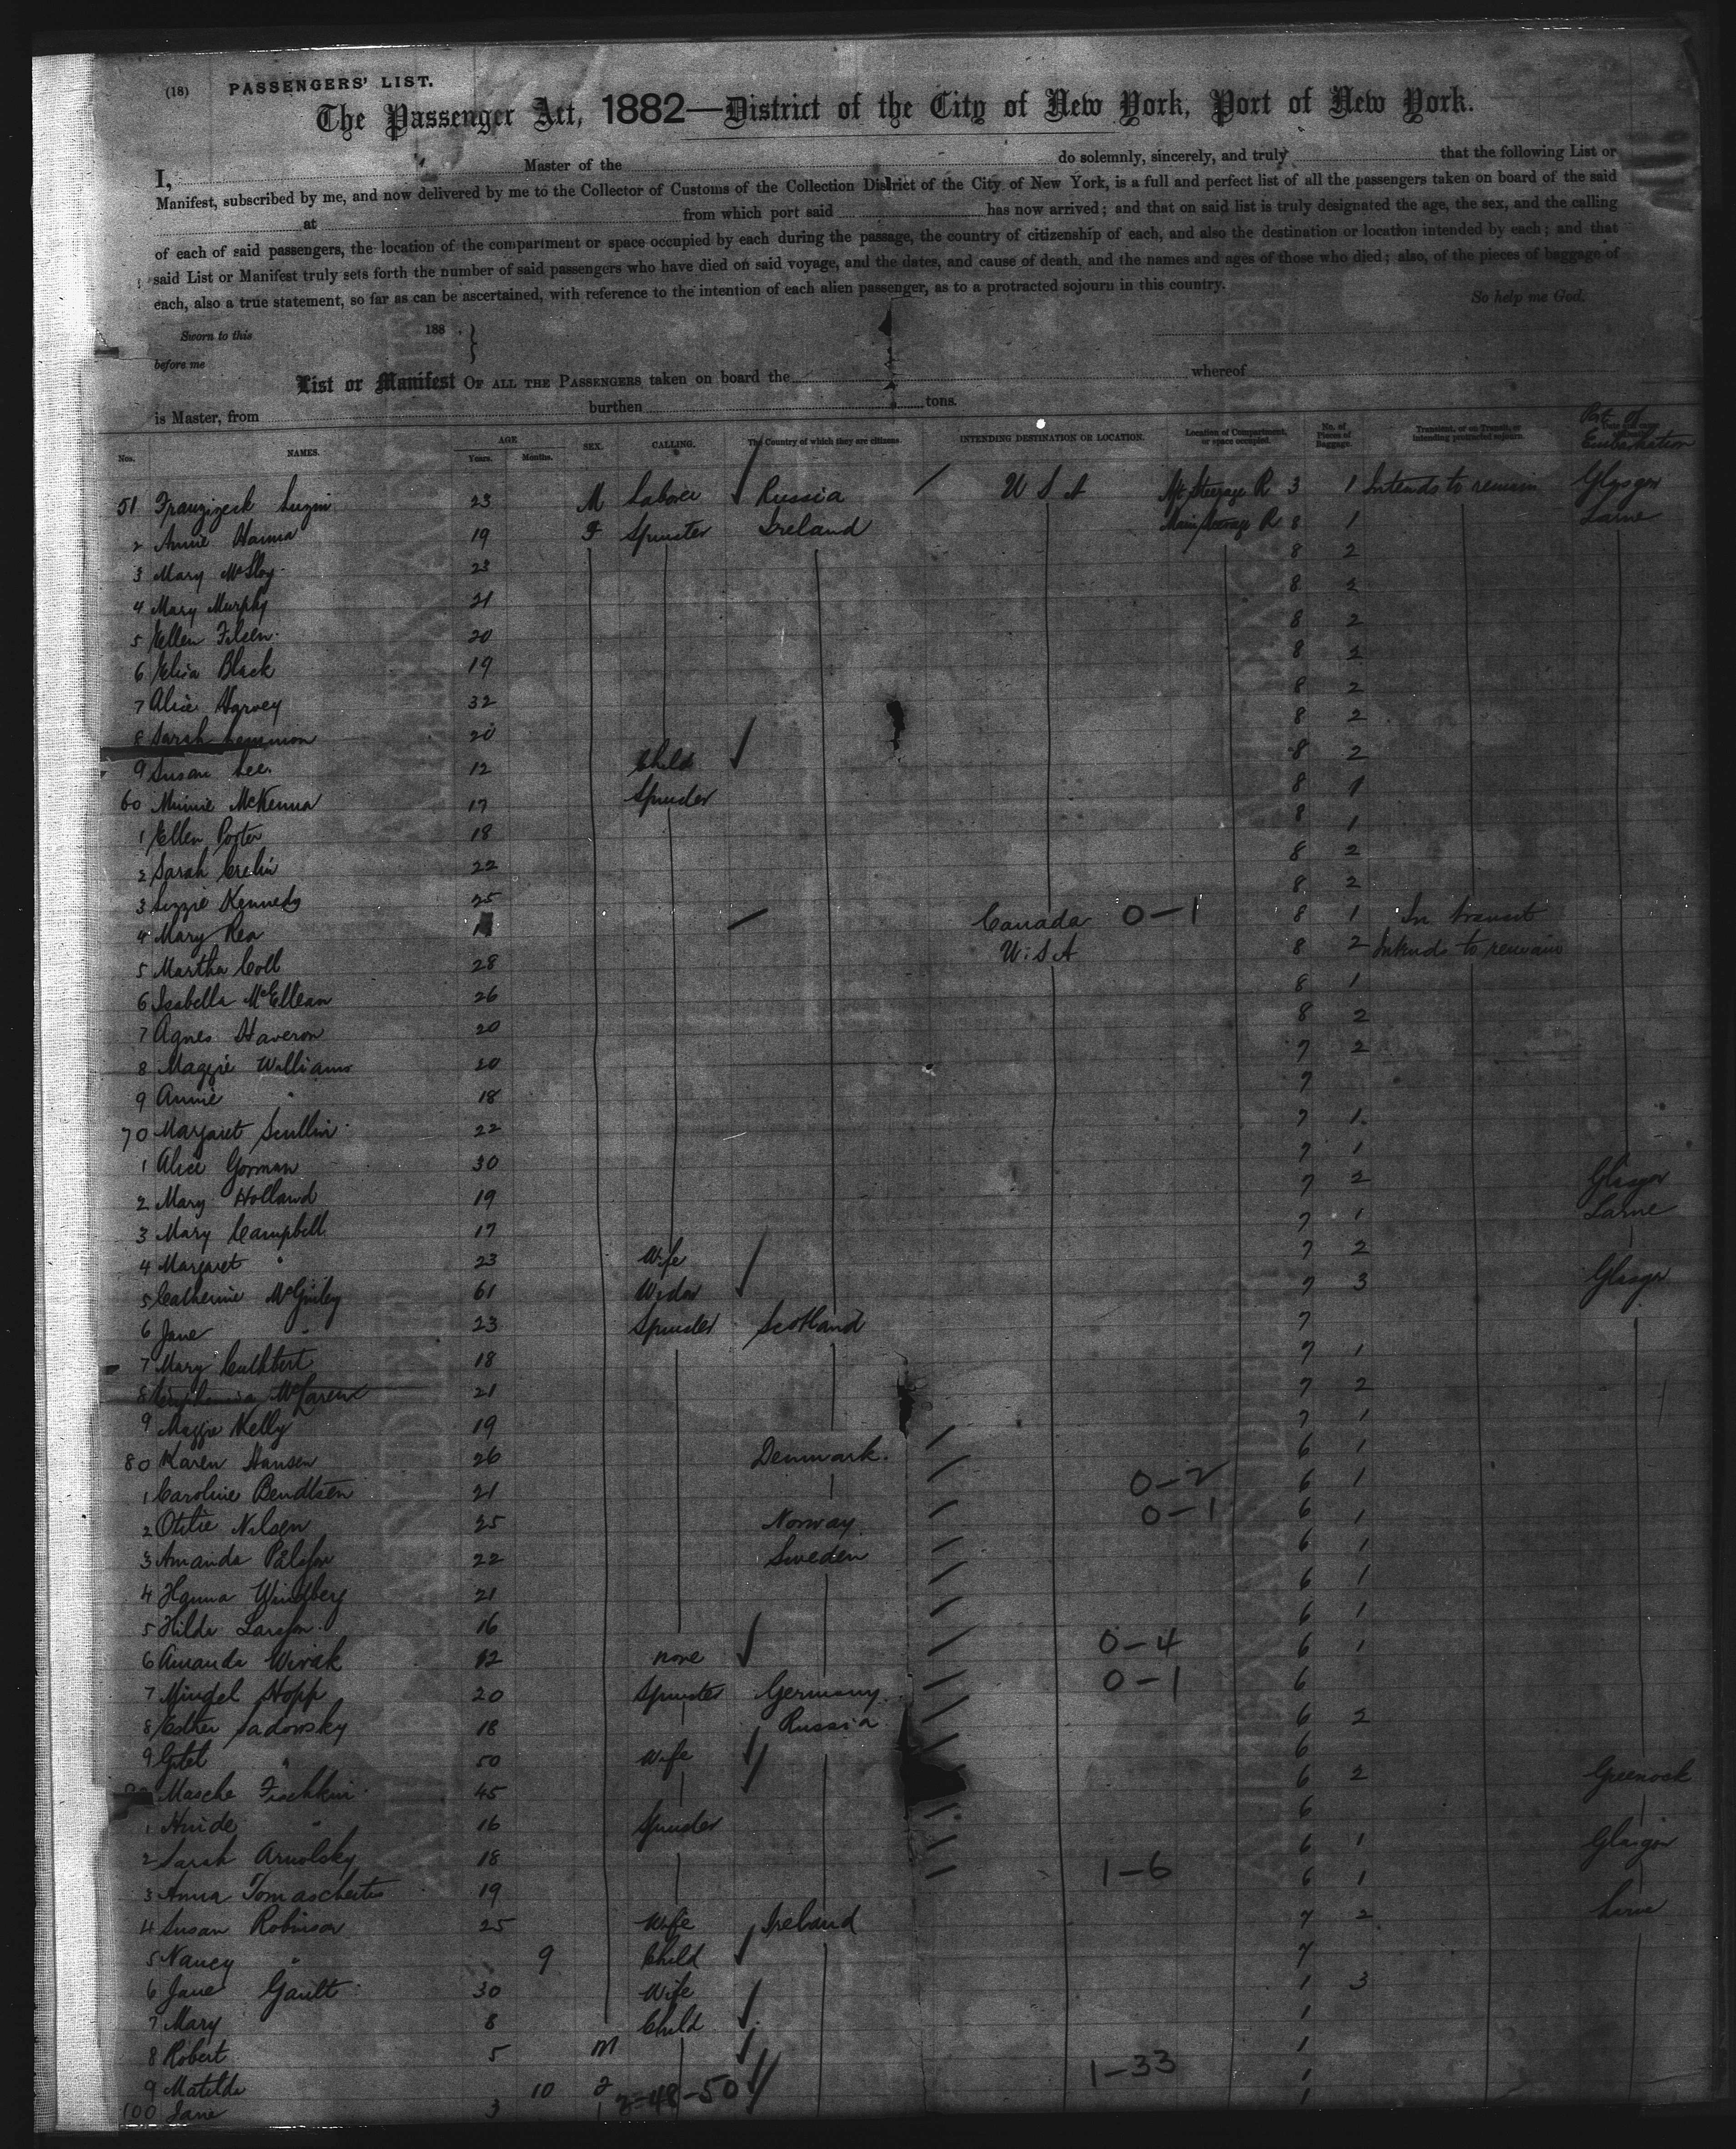 (18) PASSENGERS' LIST.
The Passenger Act, 1882—District of the City of New York, Port of New York.
I, Master of the do solemnly, sincerely, and truly that the following List or
Manifest, subscribed by me, and now delivered by me to the Collector of Customs of the Collection District of the City of New York, is a full and perfect list of all the passengers taken on board of the said
at from which port said has now arrived; and that on said list is truly designated the age, the sex, and the calling
of each of said passengers, the location of the compartment or space occupied by each during the passage, the country of citizenship of each, and also the destination or location intended by each; and that
said List or Manifest truly sets forth the number of said passengers who have died on said voyage, and the dates, and cause of death, and the names and ages of those who died; also, of the pieces of baggage of
each, also a true statement, so far as can be ascertained, with reference to the intention of each alien passenger, as to a protracted sojourn in this country. So help me God.
Sworn to this 188
before me
List or Manifest OF ALL THE PASSENGERS taken on board the whereof
is Master, from burthen tons.
Nos. NAMES. AGE Years. Months. SEX. CALLING. The Country of which they are citizens. INTENDING DESTINATION OR LOCATION. Location of Compartment, or space occupied. No. of Pieces of Baggage. Transient, or in Transit, or intending protracted sojourn. Port of Embarkation
51 23 M Laborer Russia U S A Aft Steerage R 3 1 Intends to remain Glasgow
2 Annie Hanna 19 F Spinster Ireland Main Steerage R 8 1 Larne
3 Mary McSloy 23 8 2
4 Mary Murphy 21 8 2
5 Ellen Filsen 20 8 2
6 Eliza Black 19 8 2
7 Alice Harvey 32 8 2
8 Sarah Lemmon 20 8 2
9 Susan Lee 12 Child 8 2
60 Minnie McKenna 17 Spinster 8 1
1 Ellen Porter 18 8 1
2 Sarah Crelin 22 8 2
3 Lizzie Kennedy 25 8 2
4 Mary Rea Canada 0-1 8 1 In transit
5 Martha Coll 28 U.S.A 8 2 Intends to remain
6 Isabella McEllean 26 8 1
7 Agnes Haveron 20 8 2
8 Maggie Williams 20 7 2
9 Annie " 18 7
70 Margaret Scullin 22 7 1
1 Alice Gorman 30 7 1
2 Mary Holland 19 7 2 Glasgow
3 Mary Campbell 17 7 1 Larne
4 Margaret " 23 Wife 7 2
5 Catherine McGinley 61 Widow 7 3 Glasgow
6 Jane " 23 Spinster Scotland 7
7 Mary Cuthbert 18 7 1
8 Euphemia McLaren 21 7 2
9 Maggie Kelly 19 7 1
80 Karen Hansen 26 Denmark. 6 1
1 Caroline Bendtsen 21 0-2 6 1
2 Otilie Nilsen 25 Norway 0-1 6 1
3 Amanda Pålsson 22 Sweden 6 1
4 Hanna Windberg 21 6 1
5 Hilda Larsson 16 6 1
6 Amanda Wirak 12 none 0-4 6 1
7 Mindel Hopp 20 Spinster Germany 0-1 6
8 Esther Sadowsky 18 Russia 6 2
9 Gitel " 50 Wife 6
Masche Fischkin 45 6 2 Greenock
1 Hinde " 16 Spinster 6
2 Sarah Arnolsky 18 6 1 Glasgow
3 Anna Tomascheitis 19 1-6 6 1
4 Susan Robinson 25 Wife Ireland 7 2 Larne
5 Nancy " 9 Child 7
6 Jane Gault 30 Wife 1 3
7 Mary 8 Child 1
8 Robert 5 M 1
9 Matilda 10 F 1-33 1
100 Jane 3 2-48-50 1